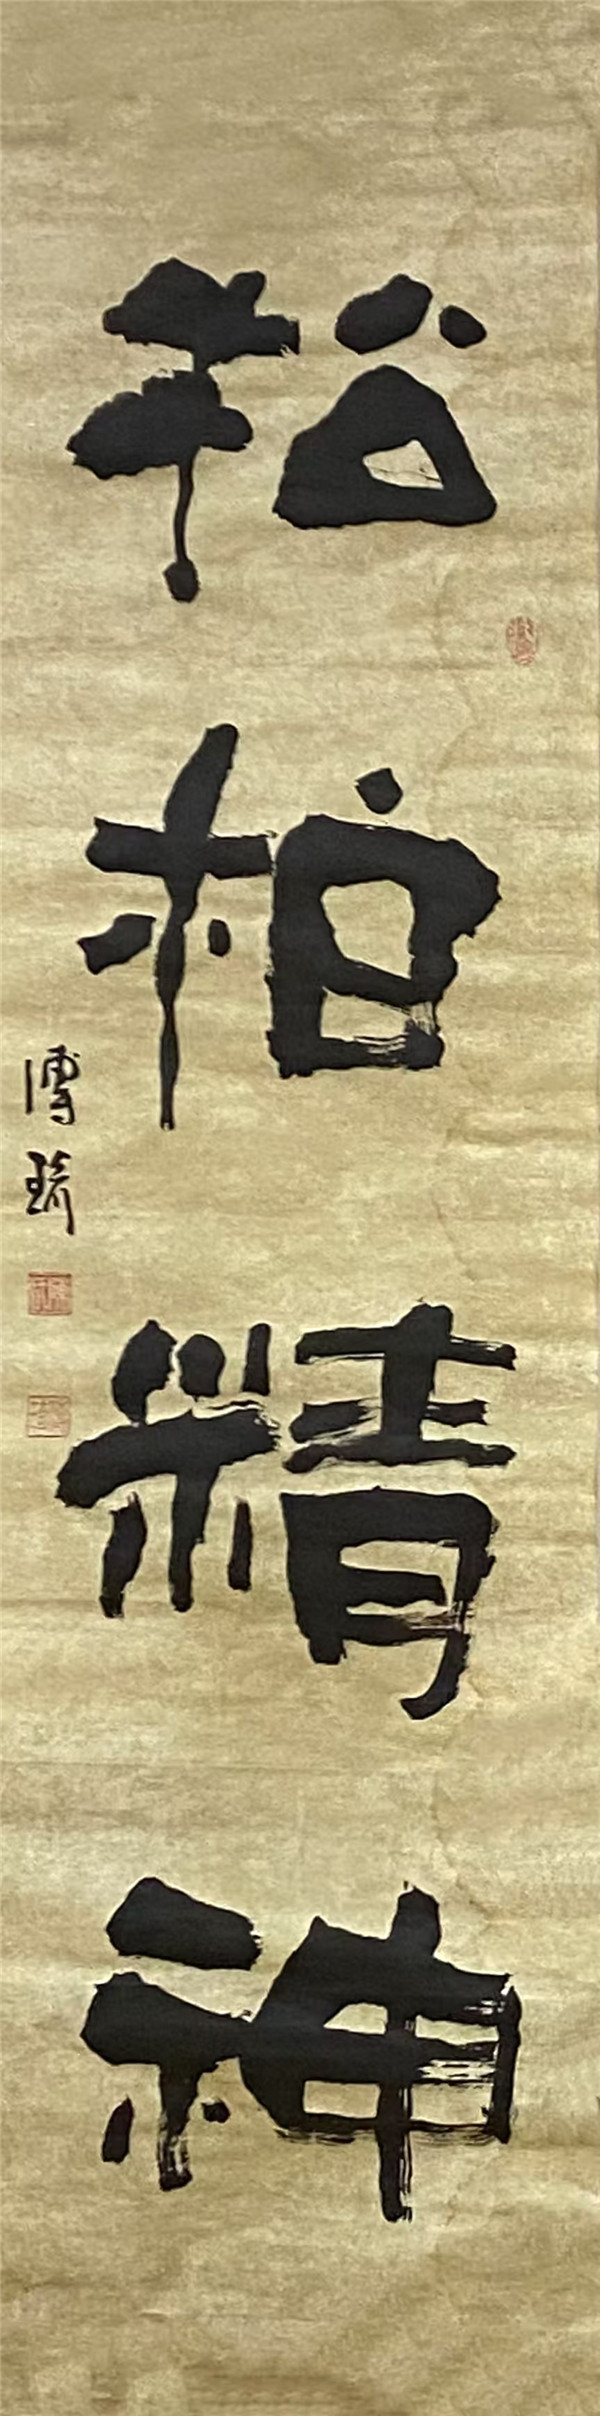 松柏精神
博琦